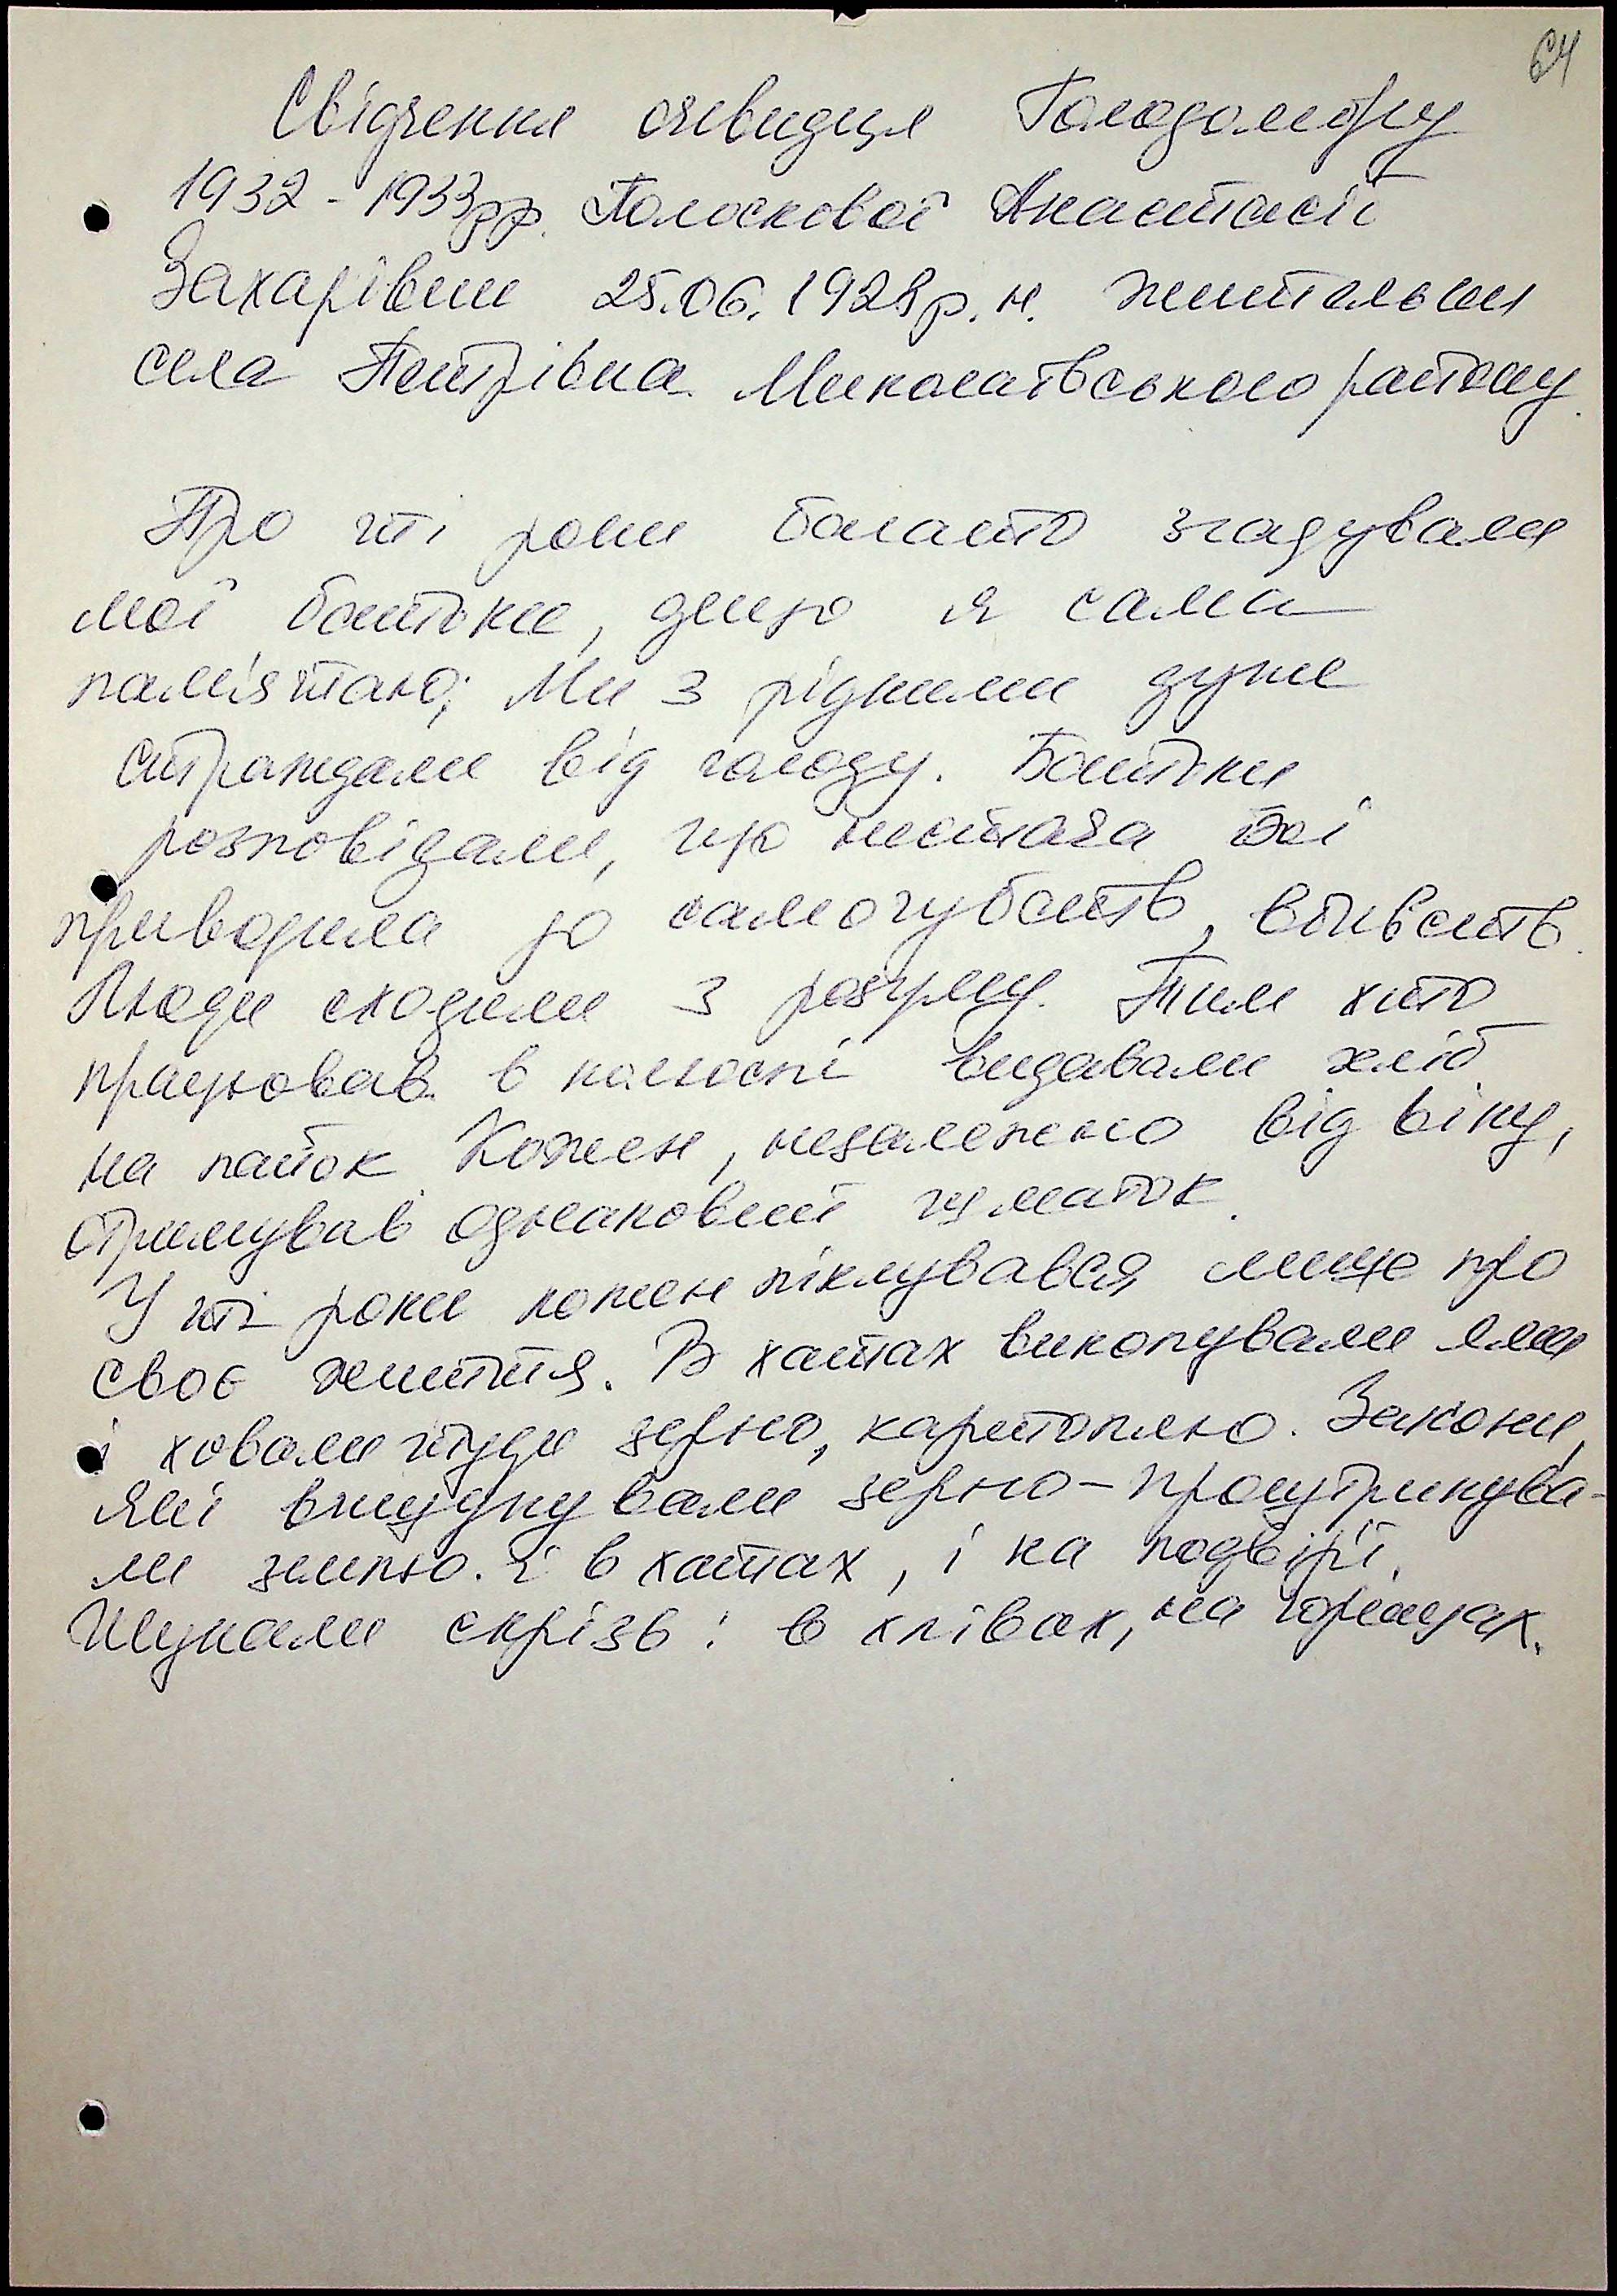 64
Свідчення очевидця Голодомору
1932 - 1933рр. Полоскової Анастасії
Захарівни 25.06.1928р.н. жительки
села Петрівка Миколаївського району.
Про ті роки багато згадували
мої батьки, дещо я сама
пам'ятаю; Ми з рідними дуже
страждали від голоду. Батьки
розповідали, що нестача їжі
приводила до самогубств, вбивств.
Люди сходили з розуму. Тим хто
працював в колгоспі видавали хліб
на пайок. Кожен, незалежно від віку,
отримував однаковий шматок.
У ті роки кожен піклувався лише про
своє життя. В хатах викопували ями
і ховали туди зерно, картоплю. Закони,
які вишукували зерно - проштрикува-
ли землю. І в хатах, і на подвір'ї.
Шукали скрізь: в хлівах, на горищах.